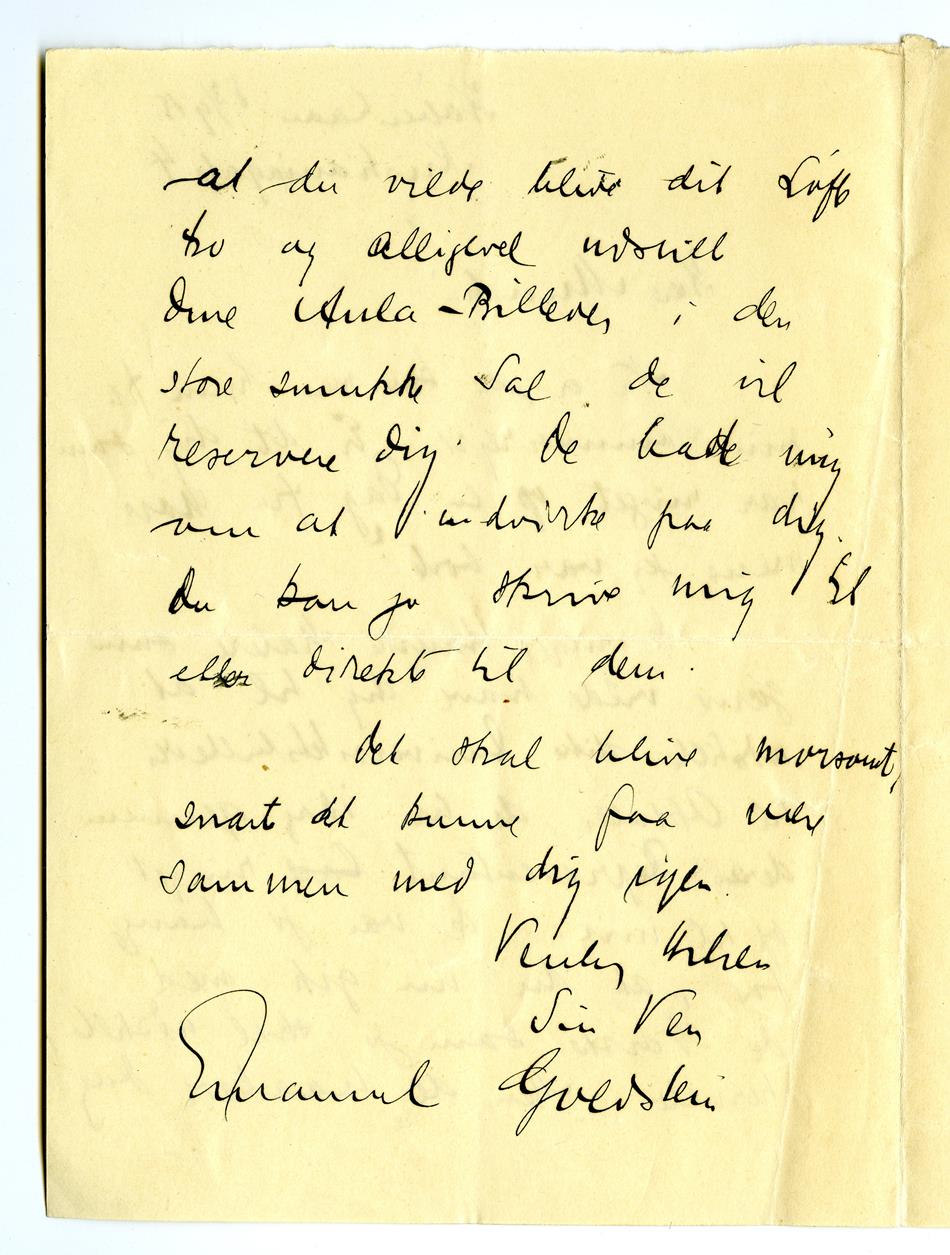 at du vilde blive dit Løfte
tro og alligevel udstille
dine Aula-Billeder i den
store smukke Sal de vil
reservere dig. De bade mig
om at indvirke paa dig.
Du kan jo skrive mig til
eller direkte til dem.
Det skal blive morsomt,
snart at kunne faa være
sammen med dig igen.
Venlig Hilsen
Din Ven
Emanuel Goldstein